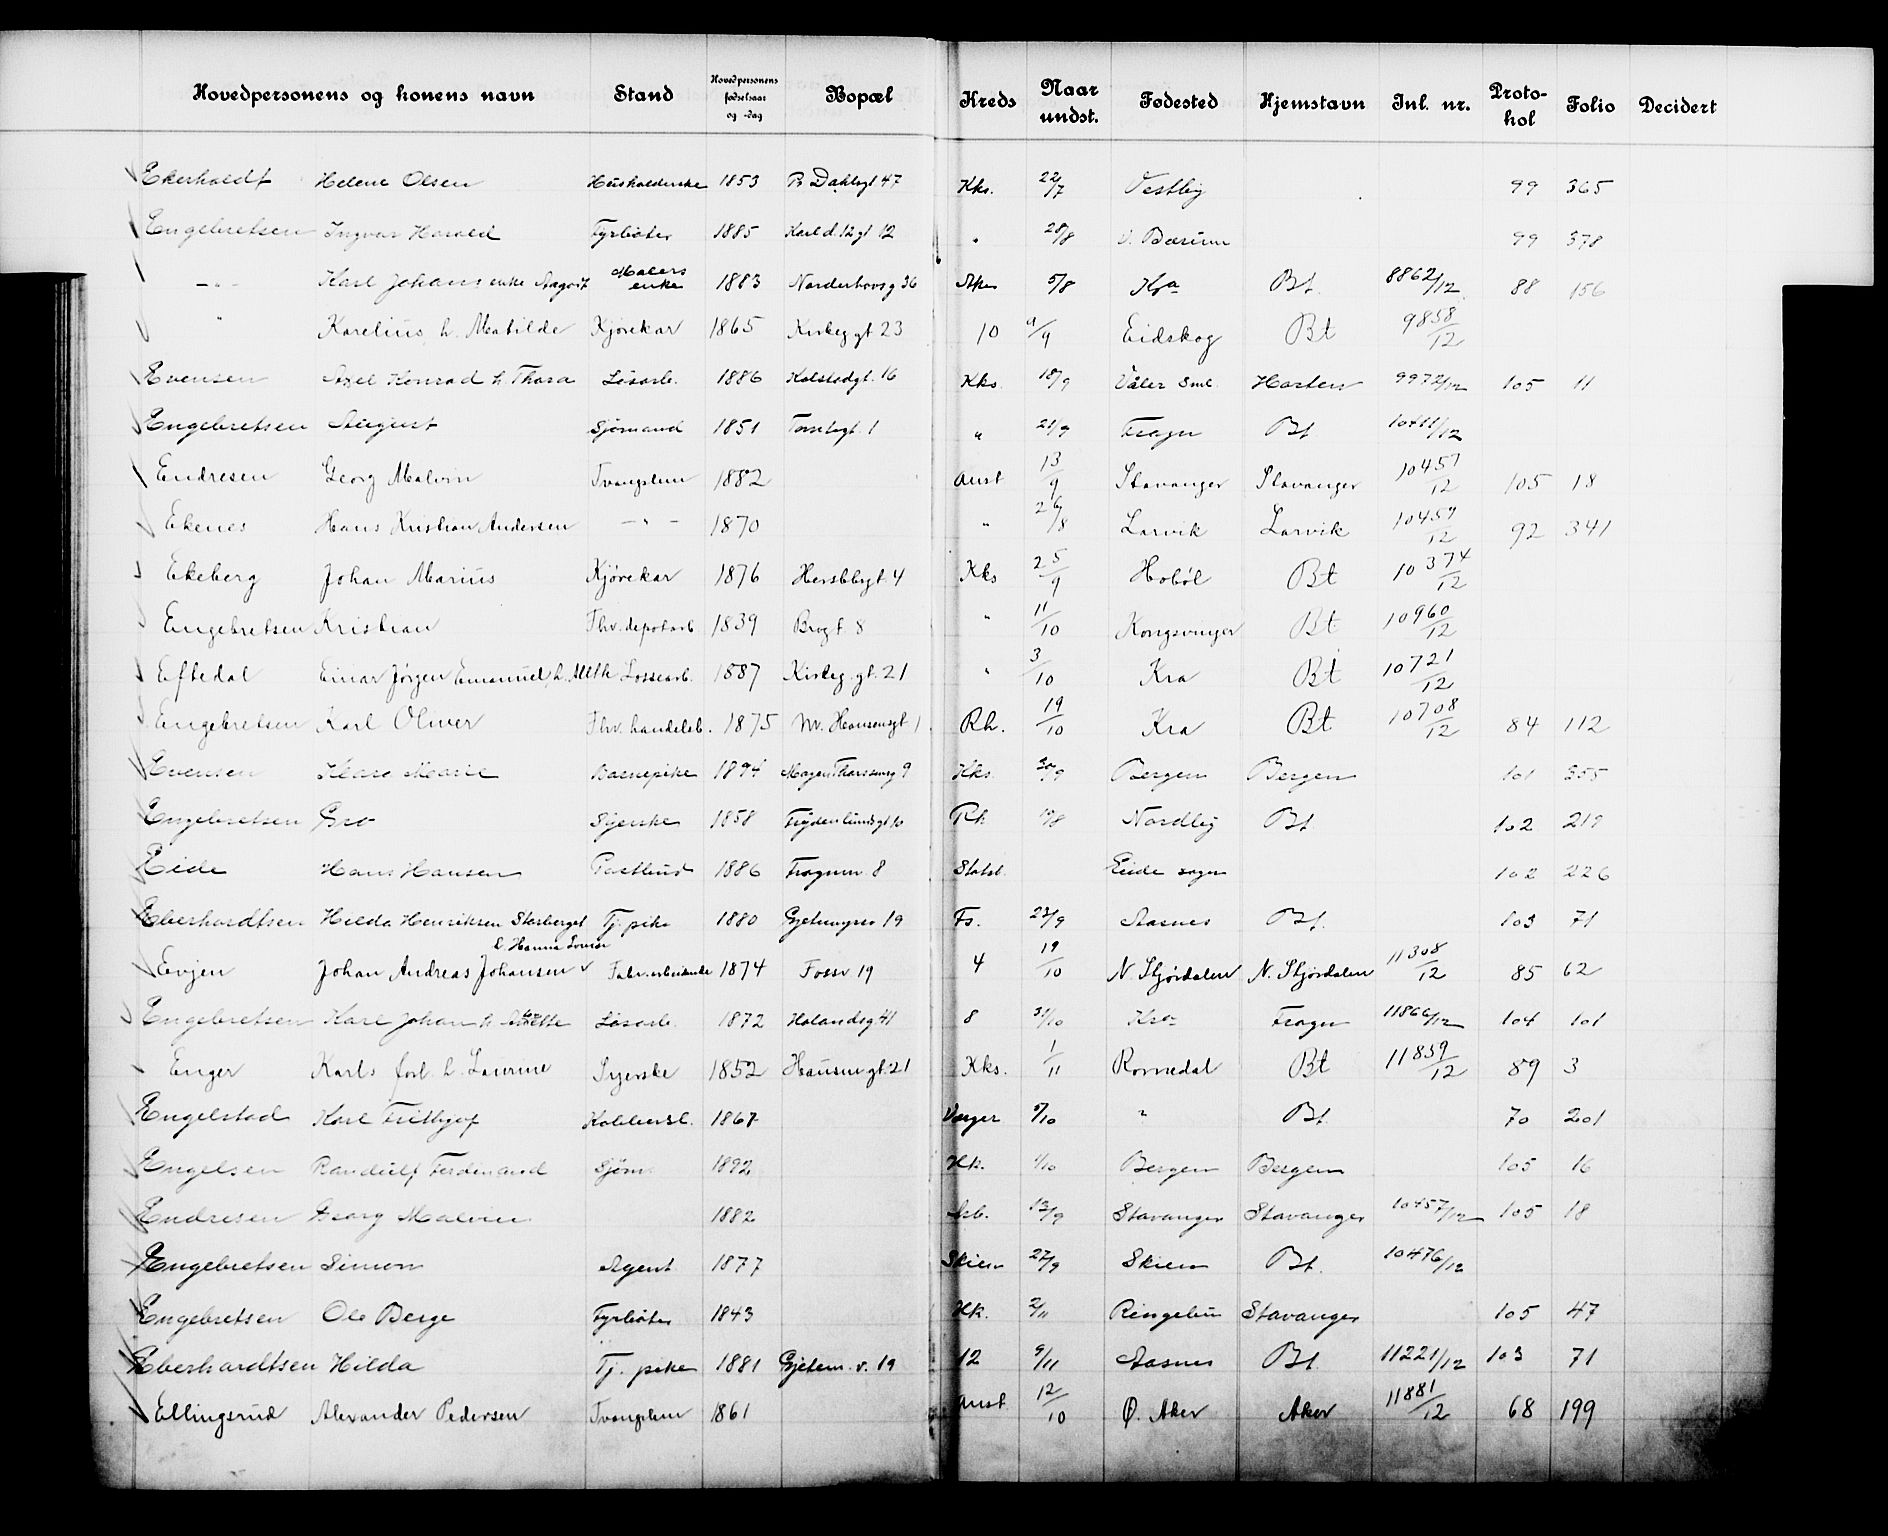 Hovedpersonens og konens navn Stand Hovedpersonens fødselsaar og -dag Bopæl Kreds Naar undst. Fødested Hjemstavn Inl. nr. Protokol Folio Decidert
Ekerholdt Helene Olsen Husholderske 1853 B. Dahlsgt 47 Kks. 22/7 Vestby 99 365
Engebretsen Ingvar Harald Fyrbøter 1885 Karl d. 12 gt 12 " 28/8 V. Bærum 99 378
— " — Karl Johans enke Aagot Malers enke 1883 Norderhovsg 36 Aker 5/8 Kra Bt. 8862/12 88 156
" Karelius, h. Matilde Kjørekar 1865 Kirkeg gt 23 10 9/9 Eidskog Bt 9858/12
Evensen Axel Konrad h. Thora Løsarb. 1886 Kolstadgt. 16 Kks. 18/9 Våler Sml. Horten 9972/12 105 11
Engebretsen August Sjømand 1851 1 " 21/9 Bt. 10411/12
Endresen Georg Malvin Tvangslem 1882 Anst 13/9 Stavanger Stavanger 10457/12 105 18
Ekenes Hans Kristian Andersen — " — 1870 " 26/8 Larvik Larvik 10459/12 92 341
Ekeberg Johan Marius Kjørekar 1876 Herslebgt. 4 Kks 25/9 Hobøl Bt 10374/12
Engebretsen Kristian Fhv. depotarb 1839 Brogt. 8 " 11/10 Kongsvinger Bt 10960/12
Eftedal Einar Jørgen Emanuel, h. Lossearb. 1887 Kirkeg. gt. 21 " 3/10 Kra Bt 10721/12
Engebretsen Karl Oliver Fhv. handelsb. 1875 M. Hansensgt 1 Rh. 19/10 Kra Bt 10708/12 84 112
Evensen Klara Marie Barnepike 1894 9 Kks. 30/9 Bergen Bergen 101 355
Engebretsen Gro Syerske 1858 Frydenlundsgt 10 Rh 19/8 Nordby Bt. 102 219
Eide Hans Hansen Postbud 1886 Frognerv. 8 Statsb. Eide sogn 102 226
Eberhardtsen Hilda Henriksen Storberget Tj. pike 1880 Gjetemyrsv 19 Fs. 23/9 Aasnes Bt. 103 71
h. Hanna Lovise
Evjen Johan Andreas Johansen Fabr. arbeider 1874 Fossv. 19 4 19/10 N. Stjørdalen N. Stjørdalen 11308/12 85 62
Engebretsen Karl Johan h. Anette Løsarb. 1872 Holandsg 41 8 31/10 Kra 11866/12 104 101
Enger Karls forl. h. Laurine Syerske 1852 Hausm gt. 21 Kks. 1/11 Romedal Bt 11839/12 89 3
Engelstad Karl Frithjof 1867 Varger 5/10 " Bt. 70 201
Engelsen Randulf Ferdinand Sjøm. 1892 Hk. 1/10 Bergen Bergen 105 16
Endresen Georg Malvin 1882 Arb. 13/9 Stavanger Stavanger 10457/12 105 18
Engebretsen Simon Agent 1877 Skien 27/9 Skien Bt. 10476/12
Engebretsen Ole Berge Fyrbøter 1843 Hk. 2/11 Ringebu Stavanger 105 47
Eberhardtsen Hilda Tj. pike 1881 Gjetem. v. 19 12 9/11 Aasnes Bt. 11221/12 103 71
Ellingsrud Alexander Pedersen Tvangslem 1861 Anst. 12/10 Ø. Aker Aker 11881/12 68 199